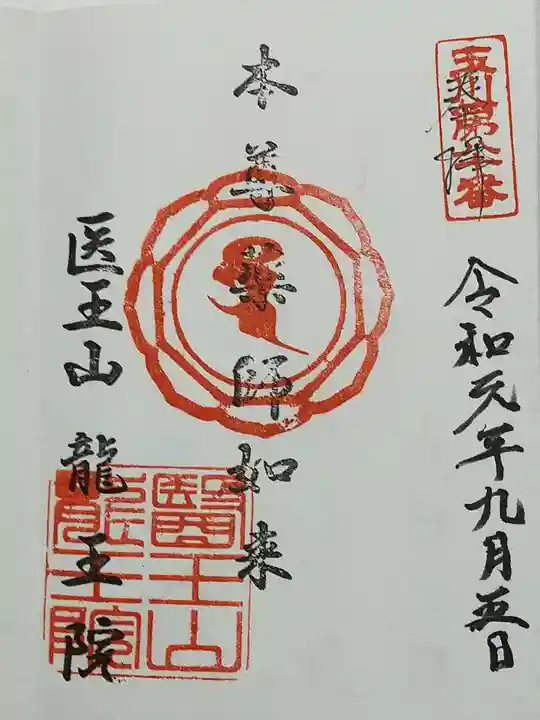 玉川第八番
奉拝
令和元年九月五日
本尊薬師如来
医王山 龍王院
醫王山
龍王院